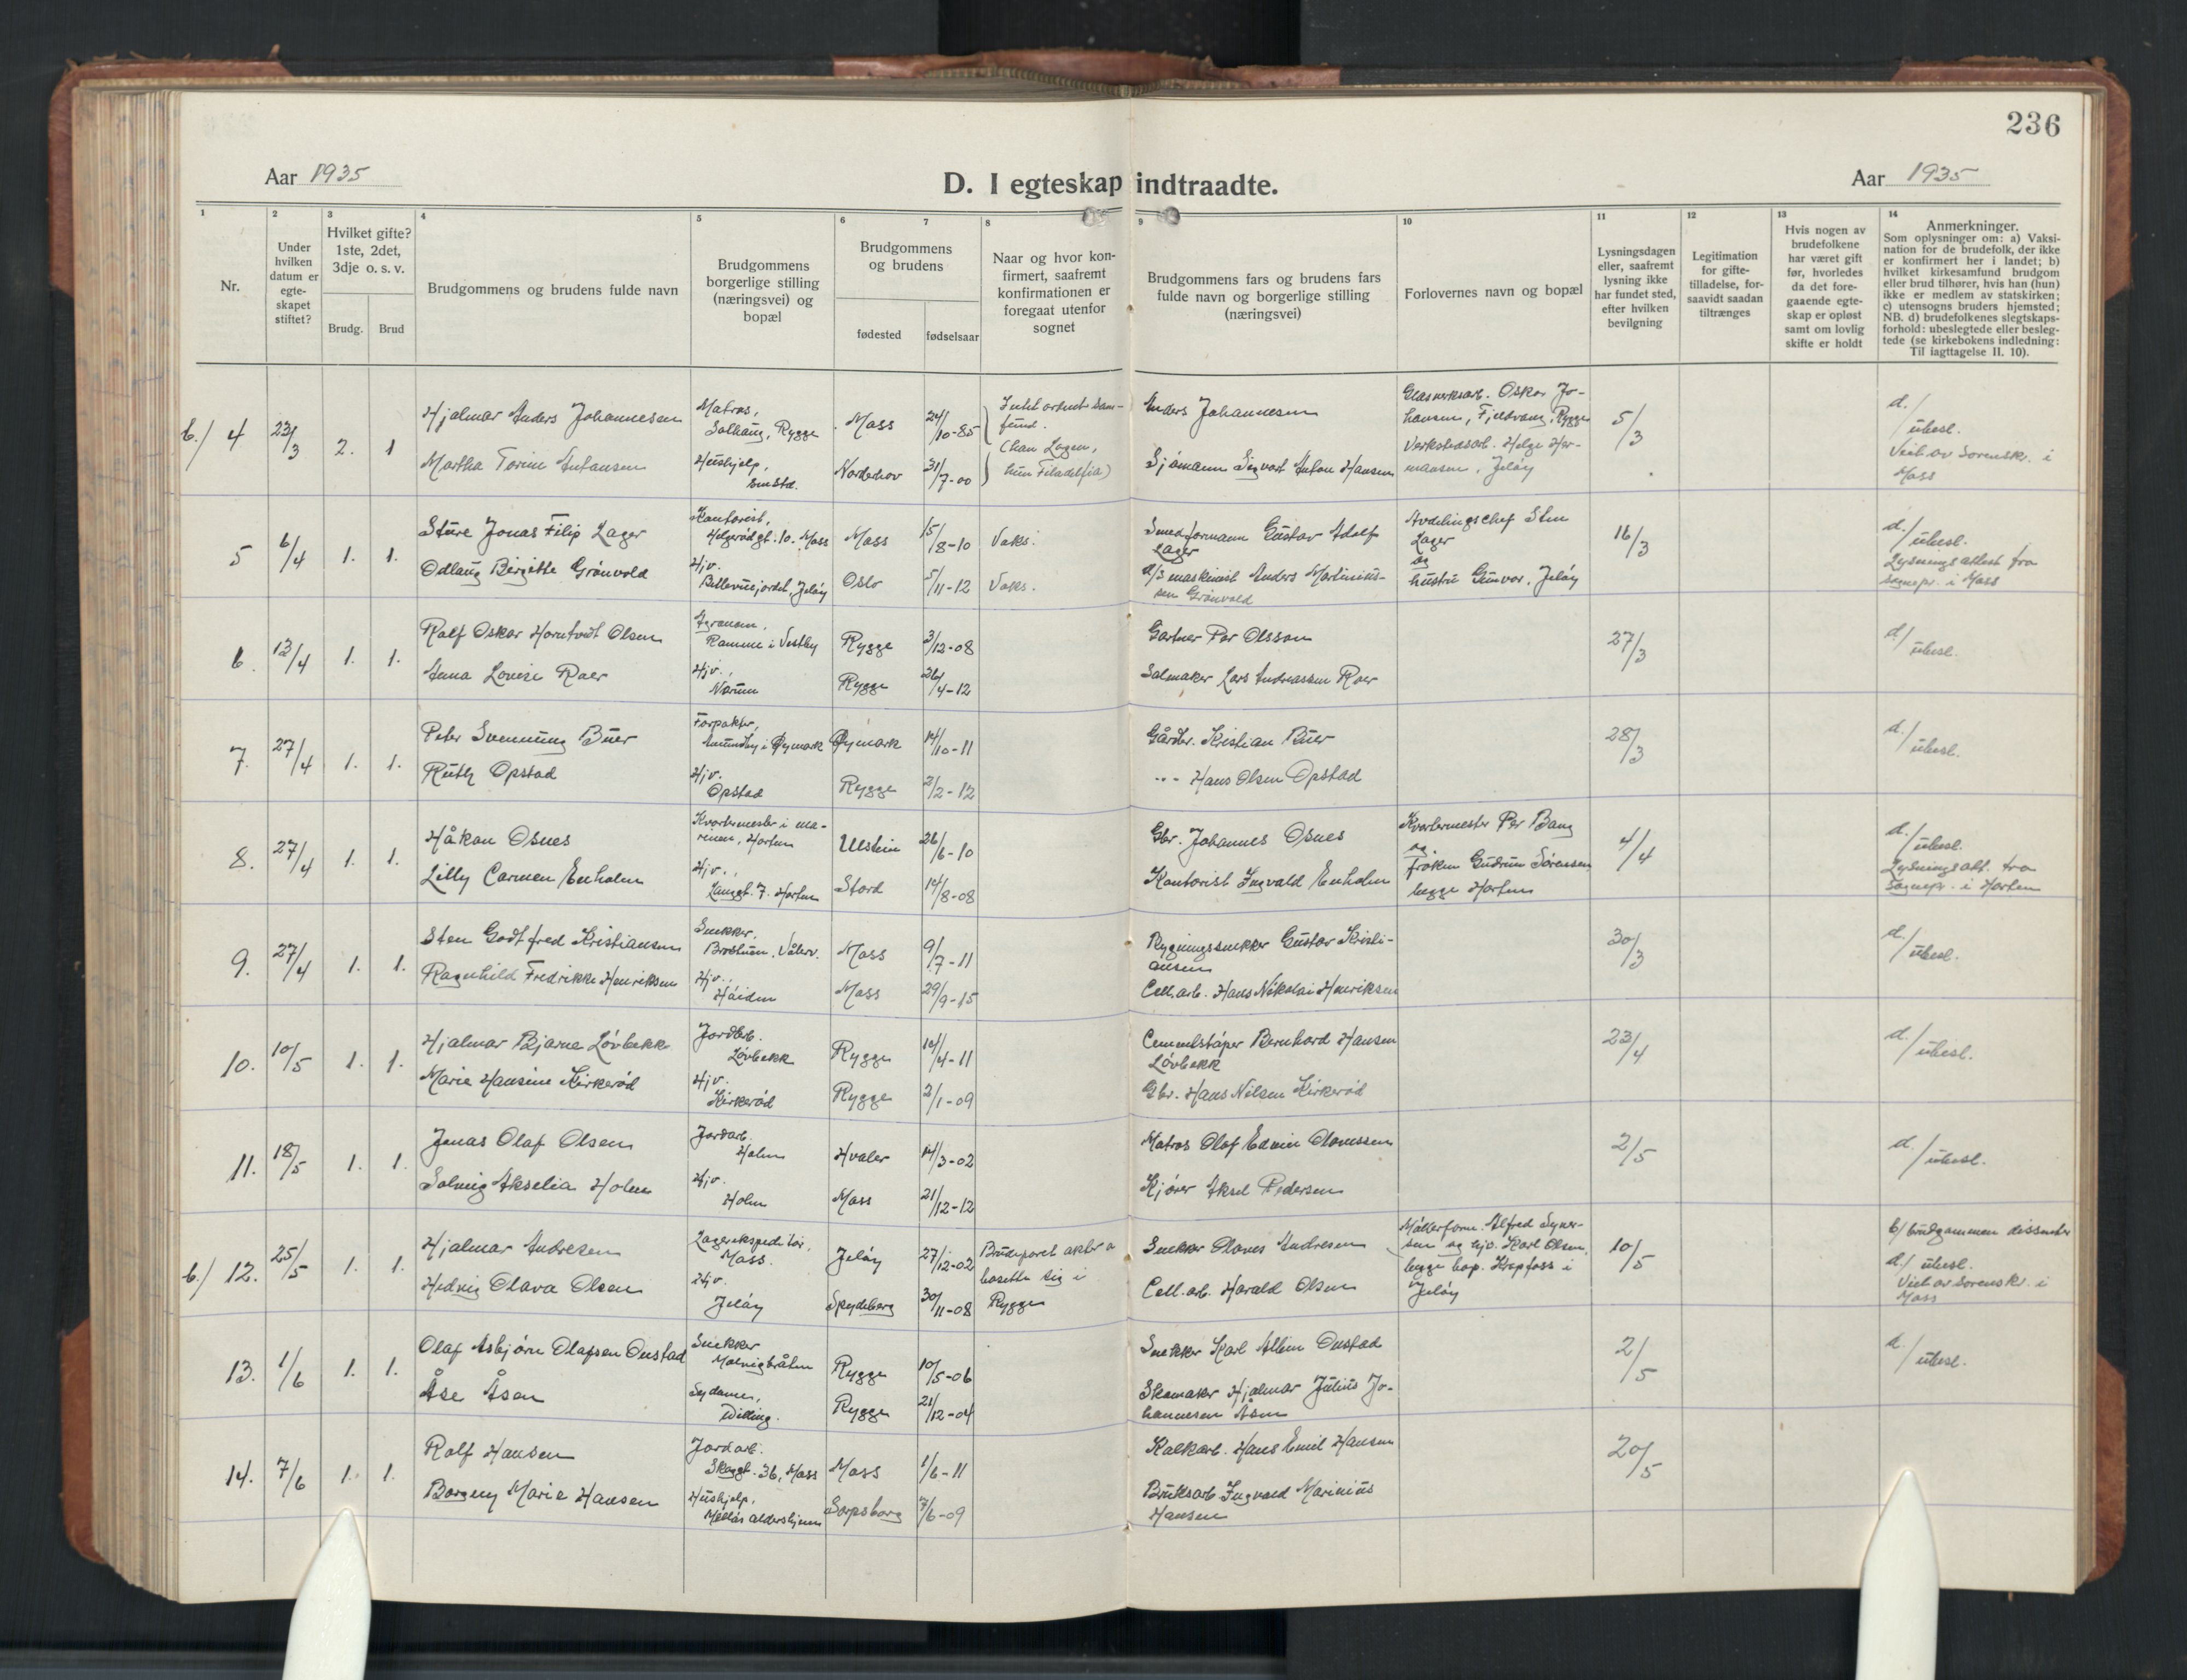 236
Aar 1935
D. I egteskap indtraadte.
Aar 1935
1
2
3
4
5
6
7
8
9
10
11
12
13
14
Nr.
Under
hvilken
datum er
egte-
skapet
stiftet?
Hvilket gifte?
1ste, 2det,
3dje o. s. v.
Brudg.
Brud
Brudgommens og brudens fulde navn
Brudgommens
borgerlige stilling
(næringsvei) og
bopæl
Brudgommens
og brudens
fødested
fødselsaar
Naar og hvor kon-
firmert, saafremt
konfirmationen er
foregaat utenfor
sognet
Brudgommens fars og brudens fars
fulde navn og borgerlige stilling
(næringsvei)
Forlovernes navn og bopæl
Lysningsdagen
eller, saafremt
lysning ikke
har fundet sted,
efter hvilken
bevilgning
Legitimation
for gifte-
tilladelse, for-
saavidt saadan
tiltrænges
Hvis nogen av
brudefolkene
har været gift
før, hvorledes
da det fore-
gaaende egte-
skap er opløst
samt om lovlig
skifte er holdt
Anmerkninger.
Som oplysninger om: a) Vaksi-
nation for de brudefolk, der ikke
er konfirmert her i landet; b)
hvilket kirkesamfund brudgom
eller brud tilhører, hvis han (hun)
ikke er medlem av statskirken;
c) utensogns bruders hjemsted;
NB. d) brudefolkenes slegtskaps-
forhold: ubeslegtede eller besleg-
tede (se kirkebokens indledning:
Til iagttagelse II. 10).
b./ 4
23/3
2.
1
Hjalmar Anders Johannesen
Martha Torine Antonsen
Matros,
Solhaug, Rygge
Hushjelp,
smstd.
Moss
Norderhov
24/10-85
31/7-00
Intet ordnet sam-
fund.
(han Logen,
hun Filadelfia)
Anders Johannesen
Sjømann Sigvart Anton Hansen
Glassverksarb. Oskar Jo-
hansen, Fjeldvang, Rygge
Verkstedsarb. Helge Her-
mansen, Jeløy
5/3
d./
ubesl.
Viet av Sorenskr. i
Moss
5
6/4
1.
1.
Sture Jonas Filip Lager
Odlaug Birgitte Grønvold
Kontorist,
Helgerødgt. 10. Moss
Hjv.
Bellevuejordet, Jeløy
Moss
Oslo
15/8-10
5/11-12
Vaks.
Vaks.
Smedformann Gustav Adolf
Lager
d/s maskinist Anders Martinius-
sen Grønvold
Avdelingschef Sten
Lager
og
hustru Gunvor, Jeløy
16/3
d./
ubesl.
Lysningsattest fra
sognepr. i Moss
6.
13/4
1.
1.
Rolf Oskar Horntvedt Olsen
Anna Lovise Roer
Agronom,
Ramme i Vestby
Hjv.,
Rygge
Rygge
3/12-08
26/4-12
Gartner Per Olsson
Salmaker Lars Andreassen Roer
27/3
d./
ubesl.
7.
27/4
1.
1.
Peter Svennung Buer
Ruth Opstad
Forpakter,
i Øymark
Hjv.
Opstad
Øymark
Rygge
14/10-11
2/2-12
Gårdbr. Kristian Buer
-"- Hans Olsen Opstad
28/3
d./
ubesl.
8.
27/4
1.
1.
Håkon Osnes
Lilly Carmen Enholm
Kvartermester i ma-
rinen, Horten
Hjv.,
Langgt. 7. Horten
Ulstein
Stord
26/6-10
14/8-08
Gbr. Johannes Osnes
Kontorist Ingvald Enholm
Kvartermester Per Bang
og
frøken Gudrun Sørensen,
begge Horten
4/4
d./
ubesl.
Lysningsatt. fra
sognepr. i Horten
9.
27/4
1.
1.
Sten Godtfred Kristiansen
Ragnhild Fredrikke Henriksen
Snekker,
Våler.
Hjv.,
Høiden
Moss
Moss
9/7-11
29/9-15
Bygningssnekker Gustav Kristi-
ansen
Cell.arb. Hans Nikolai Henriksen
30/3
d./
ubesl.
10.
10/5
1.
1.
Hjalmar Bjarne Løvbekk
Marie Hansine Kirkerød
Jordarb.
Løvbekk
Hjv.
Kirkerød
Rygge
Rygge
14/4-11
2/1-09
Cementstøper Bernhard Hansen
Løvbekk
Gbr. Hans Nilsen Kirkerød
23/4
d./
ubesl.
11.
18/5
1.
1.
Jonas Olaf Olsen
Solveig Akselia Holm
Jordarb.
Holm
Hjv.
Holm
Hvaler
Moss
14/3-02
21/12-12
Matros Olaf Edvin Olaussen
Kjører Aksel Pedersen
2/5
d./
ubesl.
b./ 12.
25/5
1.
1.
Hjalmar Andresen
Hedvig Olava Olsen
Lagerekspeditør,
Moss.
Hjv.
Jeløy
Jeløy
Spydeberg
27/12-02
30/11-08
Brudeparet akter å
bosette sig i
Rygge
Snekker Olaves Andresen
Cell.arb. Harald Olsen
Møllerform. Alfred Syver-
sen og hjv. Karl Olsen,
begge bop. Krapfoss i
Jeløy
10/5
b/ brudgommen dissenter
d./ ubesl.
Viet av sorenskr. i
Moss
13.
1/6
1.
1.
Olaf Asbjørn Olafsen Onstad
Åse Åsen
Snekker
Sydame,
Dilling.
Rygge
Rygge
10/5-06
21/12-04
Snekker Karl Albin Onstad
Skomaker Hjalmar Julius Jo-
hannesen Åsen
2/5
d./
ubesl.
14.
7/6
1.
1.
Rolf Hansen
Borgny Marie Hansen
Jordarb.
Skoggt. 36, Moss
Hushjelp,
Melløs aldershjem
Moss
Sarpsborg
1/6-11
7/6-09
Kalkarb. Hans Emil Hansen
Bruksarb. Ingvald Marinius
Hansen
20/5